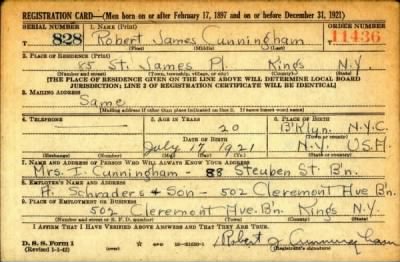 REGISTRATION CARD—(Men born on or after February 17, 1897 and on or before December 31, 1921)
SERIAL NUMBER 1. NAME (Print) ORDER NUMBER
828 Robert James Cunningham 11436
(First) (Middle) (Last)
2. PLACE OF RESIDENCE (Print)
85 St. James Pl. Kings N.Y.
(Number and street) (Town, township, village, or city) (County) (State)
[THE PLACE OF RESIDENCE GIVEN ON THE LINE ABOVE WILL DETERMINE LOCAL BOARD
JURISDICTION; LINE 2 OF REGISTRATION CERTIFICATE WILL BE IDENTICAL]
3. MAILING ADDRESS
Same
[Mailing address if other than place indicated on line 2. If same insert word same]
4. TELEPHONE 5. AGE IN YEARS 6. PLACE OF BIRTH
20 B'klyn. N.Y.C.
DATE OF BIRTH (Town or county)
July 17 1921 N.Y. U.S.A.
(Exchange) (Number) (Mo.) (Day) (Yr.) (State or country)
7. NAME AND ADDRESS OF PERSON WHO WILL ALWAYS KNOW YOUR ADDRESS
Mrs. I. Cunningham - 88 Steuben St. B'n.
8. EMPLOYER'S NAME AND ADDRESS
A. Schrader's & Son - 502 Cleremont Ave B'n.
9. PLACE OF EMPLOYMENT OR BUSINESS
502 Cleremont Ave. B'n. Kings N.Y.
(Number and street or R. F. D. number) (Town) (County) (State)
I AFFIRM THAT I HAVE VERIFIED ABOVE ANSWERS AND THAT THEY ARE TRUE.
D. S. S. Form 1
(Revised 1-1-42) Robert J. Cunningham
(Registrant's signature)